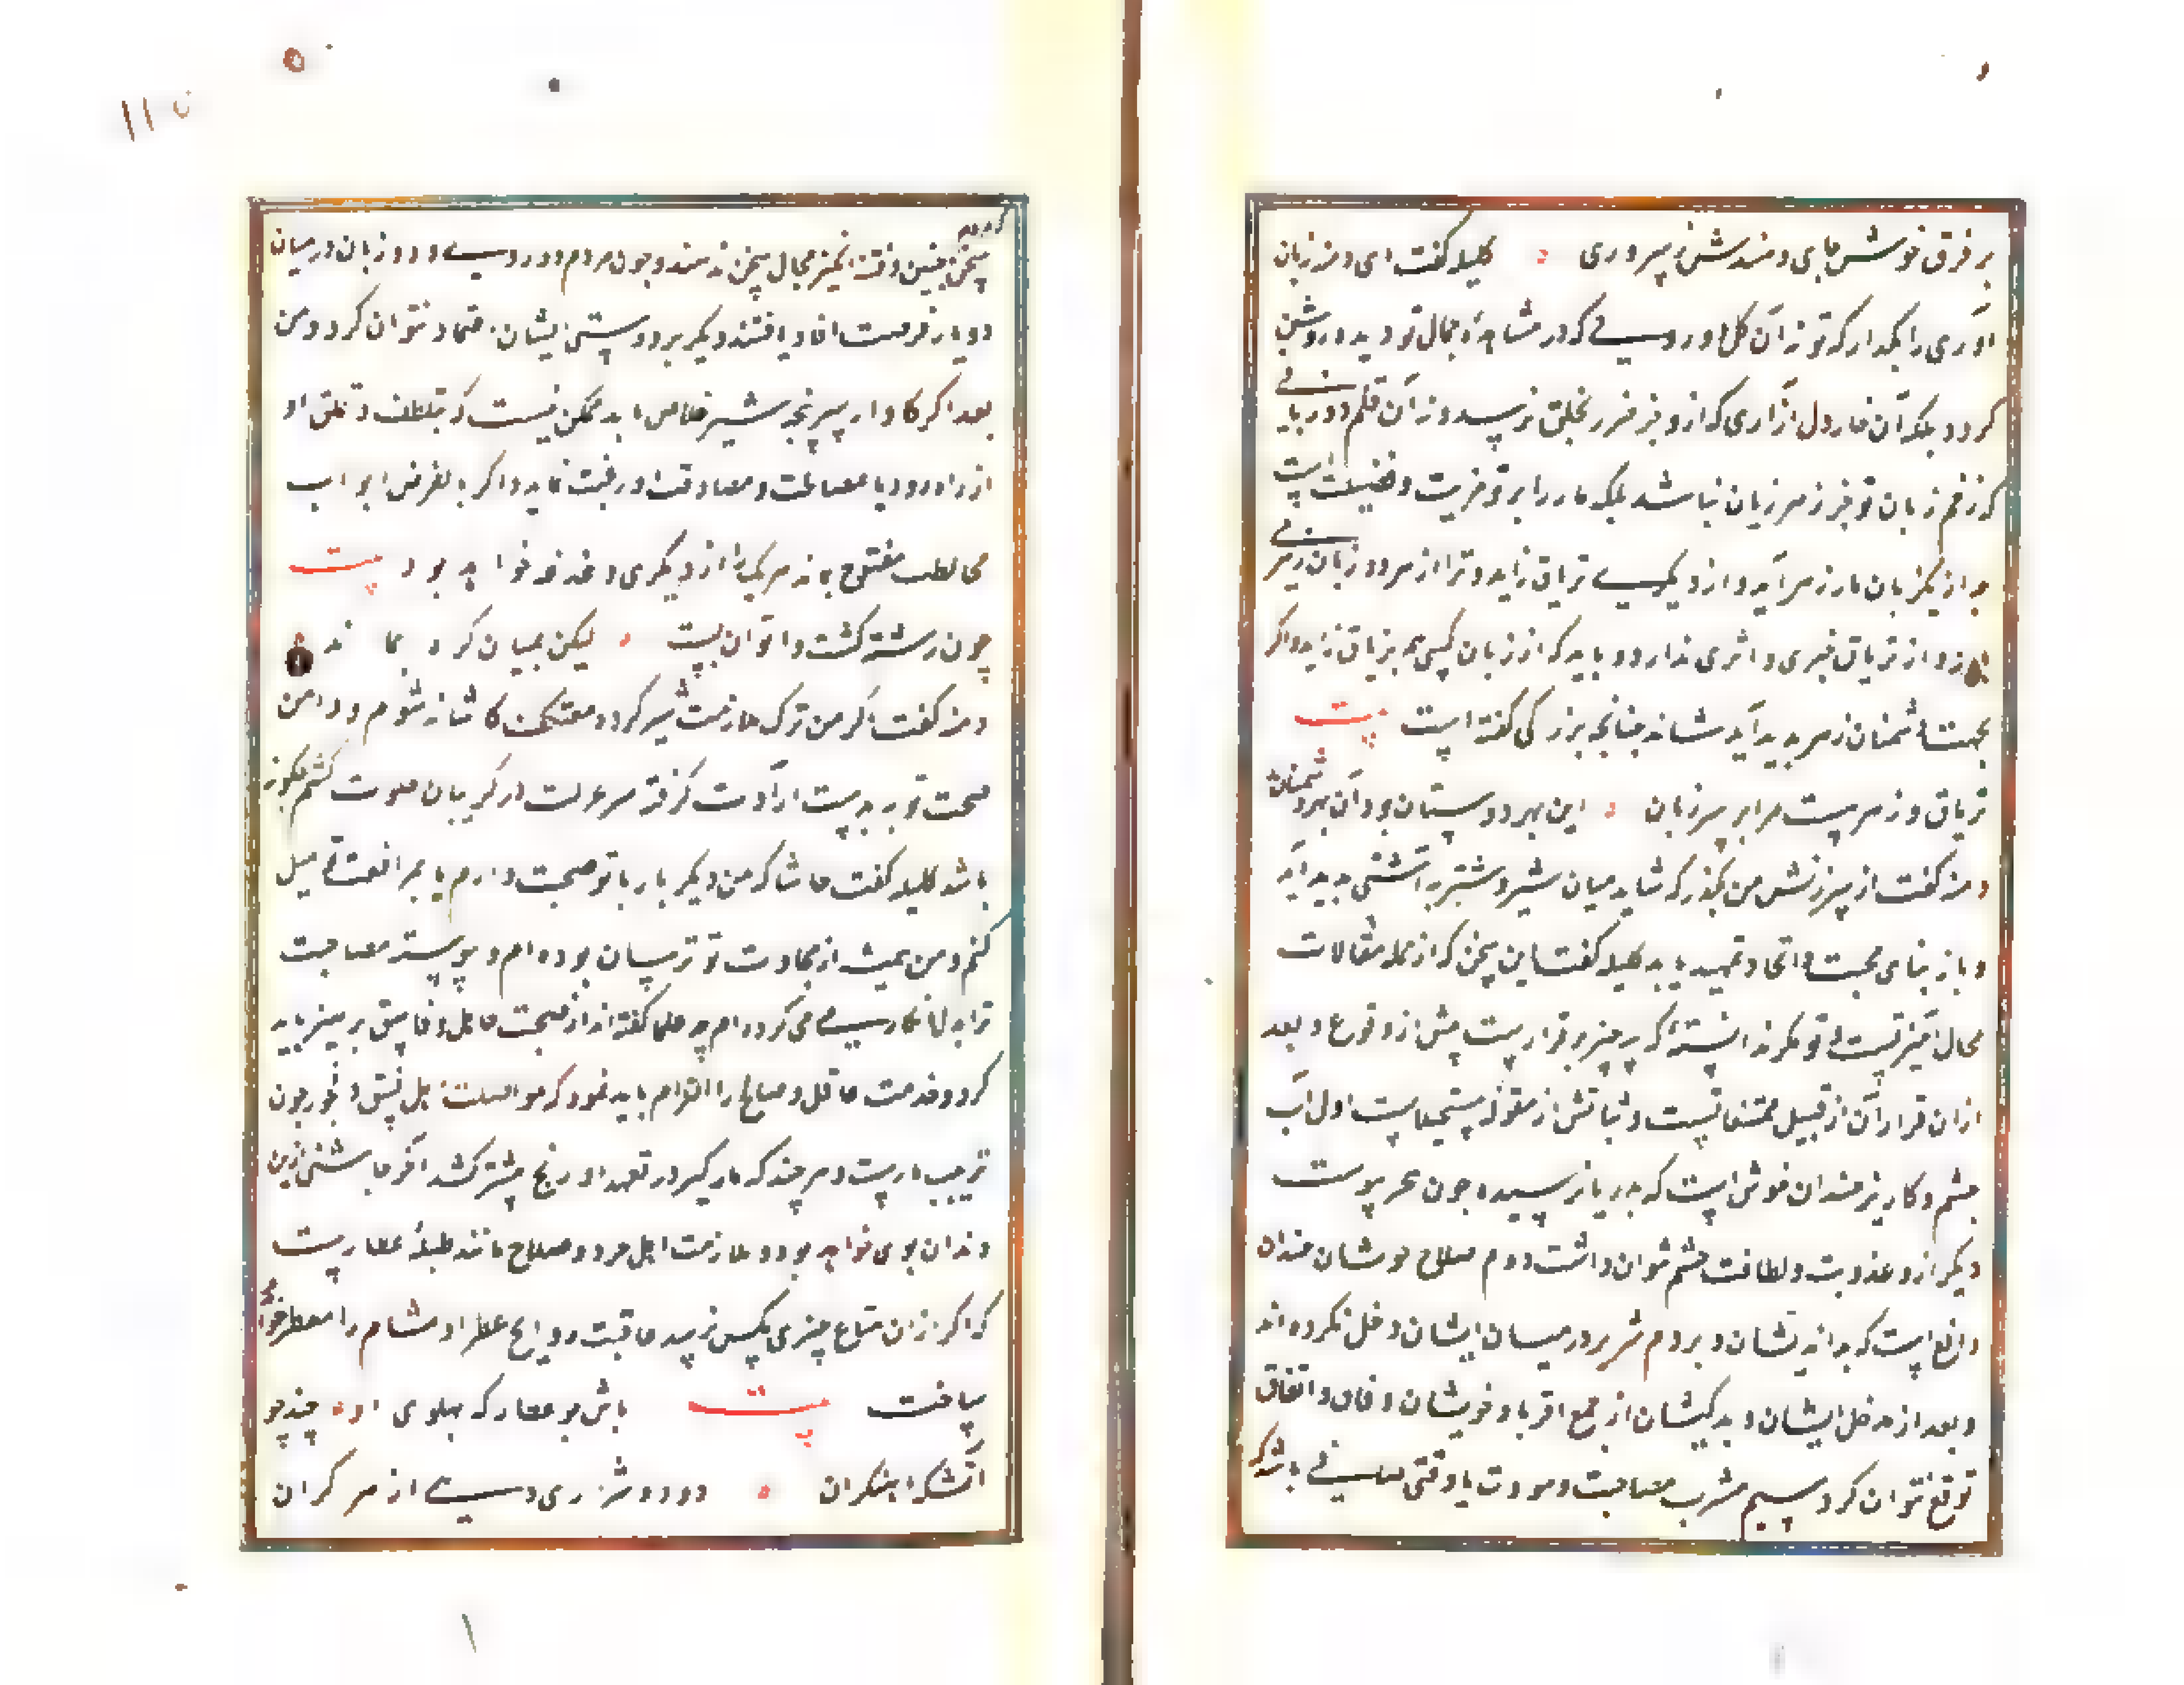 بر فرق خوشش جای و مسند سروری ه کلیله گفت ای دمنه زبان
آوری را بگذار که تو نه آن گل دورویی که در مشاهدهٔ جمال تو دیده روشن
کردد بلکه آن خار دل آزاری که از و جز ضرر بخلق نرسد و نه آن قلم دو زبانی
که زخم زبان تو جز زهر زیان نباشد بلکه مار را بر تو مزیت و فضیلت است
چه از یکزبان مار زهر آید و از دیگری تریاق زاید و ترا از هر دو زبان زهر می
زاید و از تریاق خبری و اثری ندارد و باید که از زبان کسی همه تریاق زاید و اگر
بجهت دشمنان زهر پدید آید شاید چنانچه بزرگی گفته است بیت
تریاق و زهر هست مرا بر سر زبان ه این بهر دوستان بود آن بهر دشمنان
دمنه گفت از سرزنش من بگذر که شاید میان شیر و شتربه آشتی پدید آید
و باز بنای محبت و اتحاد تمهید یابد کلیله گفت این سخن که از جمله مقالات
محال آمیز تست و تو مگر ندانستهٔ که سه چیز بر قرارست پیش از وقوع و بعد
ازان قرار آن از قبیل ممتنعاتست و ثباتش از مقولهٔ مستحیلاتست اول آب
چشم و کاریز چندان خوش است که بدریا نرسیده چون بحر پیوست
دیگر ازو عذوبت و لطافت چشم نتوان داشت دوم صلاح خویشان چندان
واقع است که بداندیشان و مردم شریر در میان ایشان دخل نکرده اند
و بعد از مدخل ایشان و بدکیشان از جمع اقربا و خویشان وفاق و اتفاق
توقع نتوان کرد سیم مشرب مصاحبت و مودت تا وقتی صافی باشد که
سخن چین و فتنه انگیز مجال سخن ندهند و چون مردم دو روی و دو زبان در میان
دو یار فرصت افساد یافتند دیگر بر دوستی ایشان اعتماد نتوان کرد و من
بعد اگر گاو از سرپنجه شیر خلاص یابد ممکن نیست که بتلطف و تملق او
از راه رود یا بمصالحت و مصادقت او رغبت نماید و اگر بالفرض ابواب
مخالطت مفتوح ماند هر یک را از دیگری دغدغه خواهد بود بیت
چون رشته گسست وا توان بست ه لیکن بمیان گره بماند
دمنه گفت اگر من ترک ملازمت شیر کرده معتکف کاشانه شوم و دامن
صحبت تو بدست ارادت گرفته سر عزلت در گریبان خلوت کشم چگونه
باشد کلیله گفت حاشا که من دیگر بار با تو صحبت دارم یا بمرافقت تو میل
کنم و من همیشه از مجاورت تو ترسان بوده ام و پیوسته مصاحبت
ترا بدل انکار می کرده ام چه علما گفته اند از صحبت جاهل و فاسق پرهیز باید
کرد و خدمت عاقل و صالح را التزام باید نمود که مواصلت اهل فسق و فجور چون
تربیت مارست و هر چند که مارگیر در تعهد او رنج بیشتر کشد آخر چاشنی از زهر
دندان بوی خواهد بود و ملازمت اهل خرد و صلاح مانند طبلهٔ عطارست
که اگر ازان متاع چیزی بکس نرسد عاقبت روایح عطر او مشام را معطر خواهد
ساخت بیت باش چو عطار که پهلوی او ه چند چو
آتشکده آهنگران ه دود و شراری رسی از هر کران